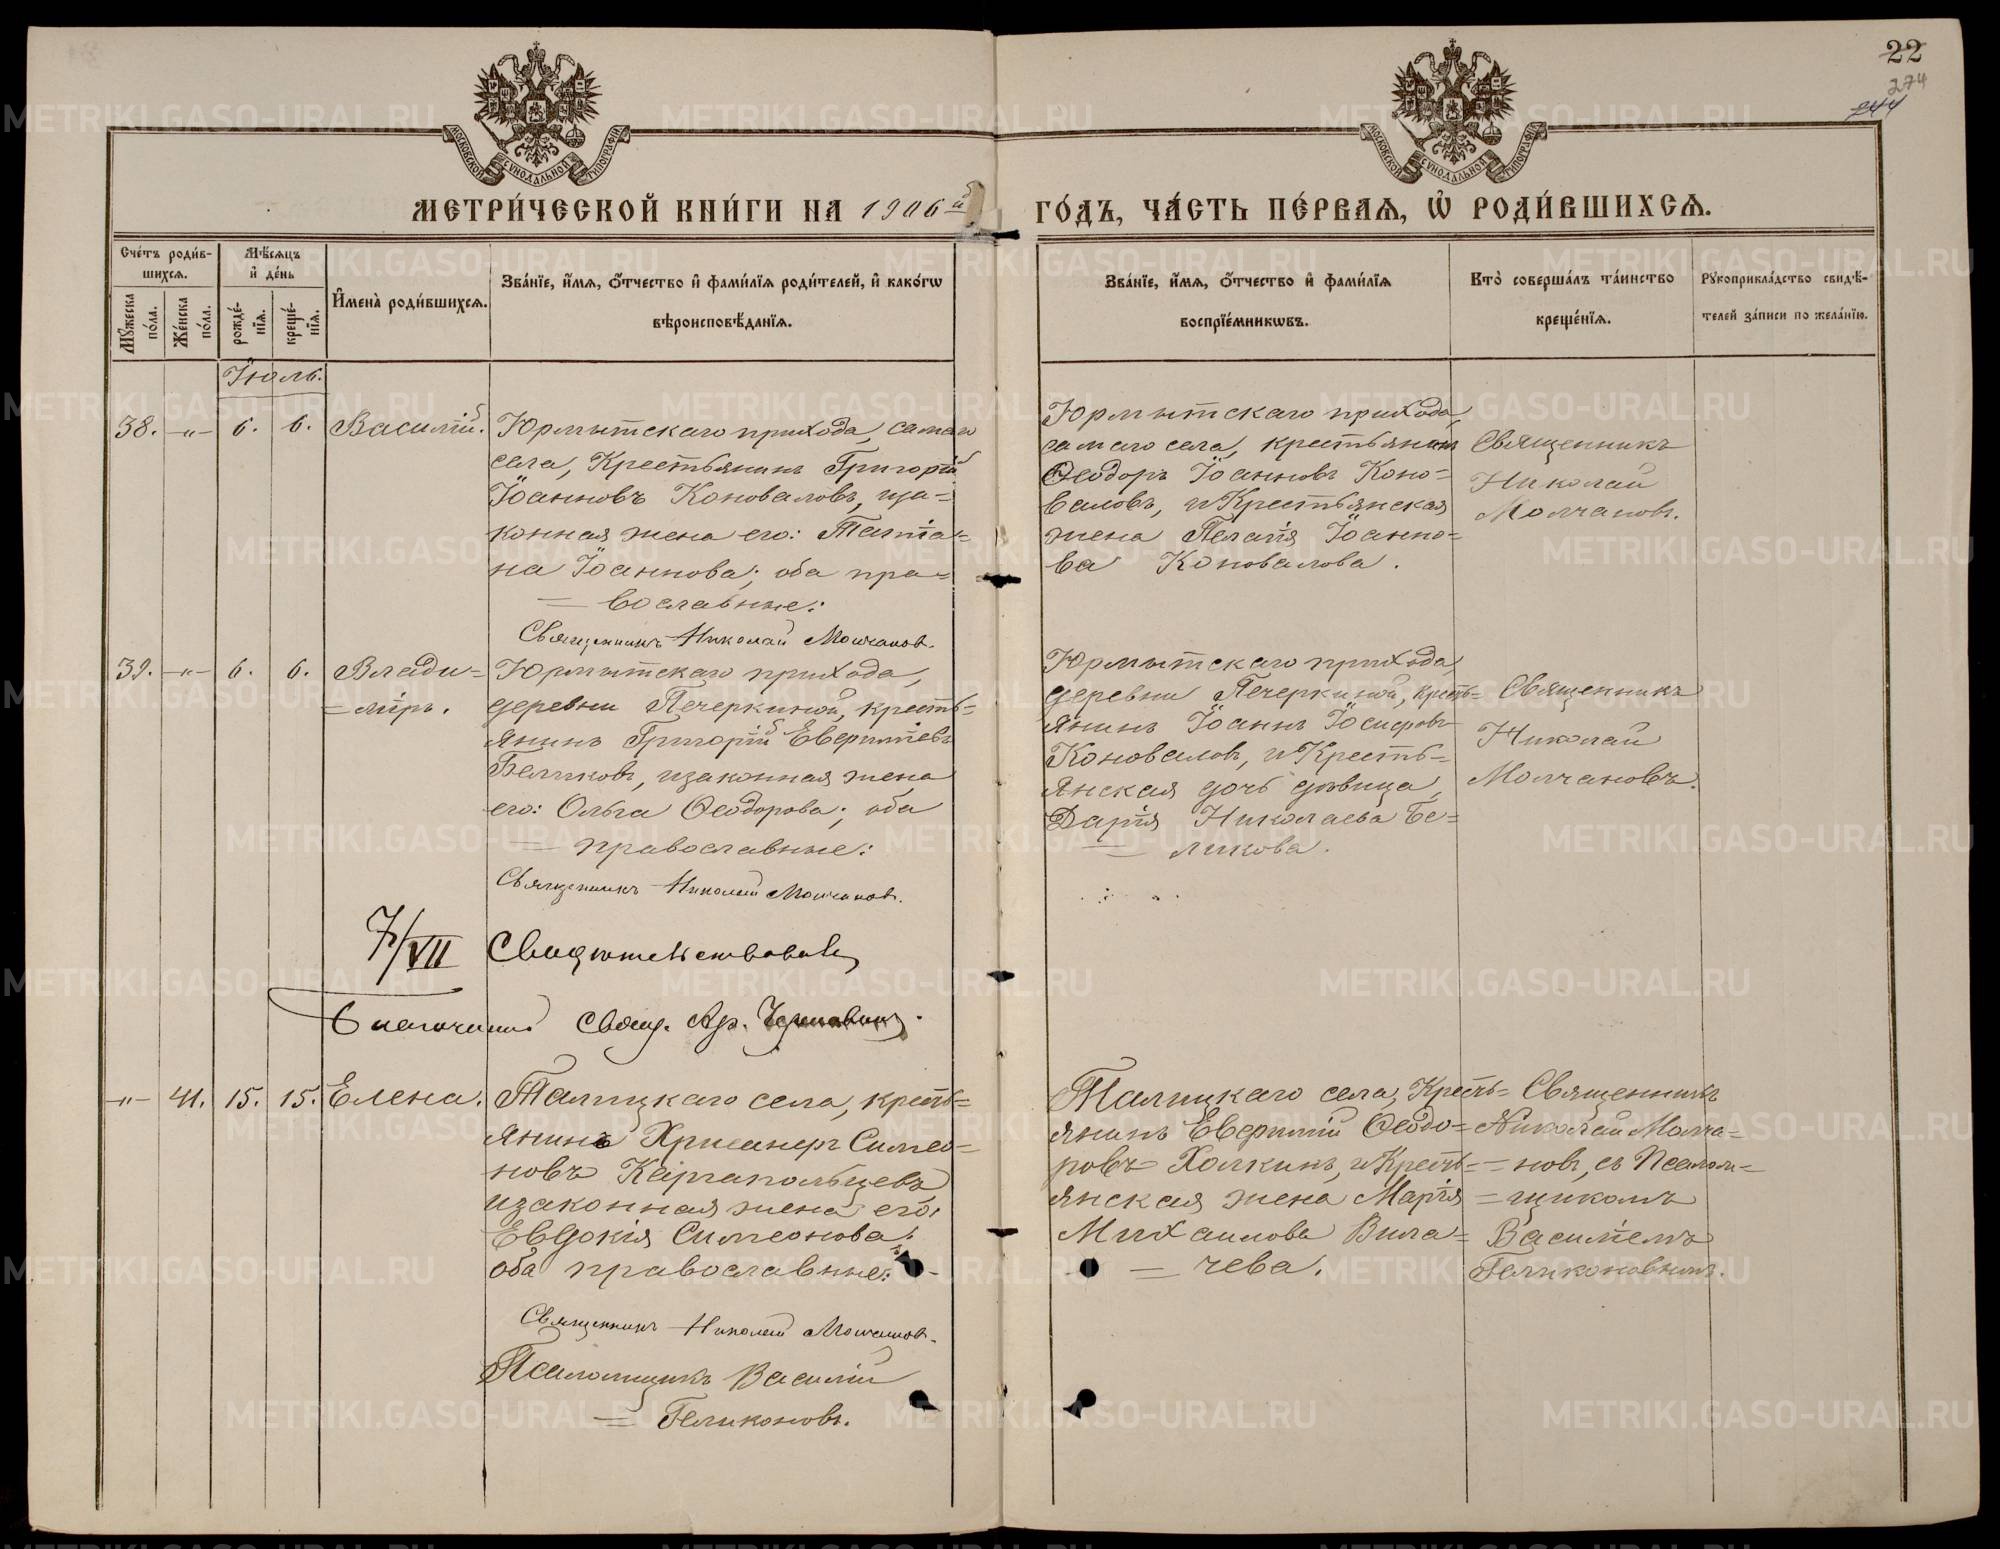 22
274
244
МОСКОВСКОЙ СУНОДАЛЬНОЙ ТИПОГРАФІИ
МОСКОВСКОЙ СУНОДАЛЬНОЙ ТИПОГРАФІИ
МЕТРИ́ЧЕСКОЙ КНИ́ГИ НА 1906й
ГО́ДЪ, ЧА́СТЬ ПЕ́РВАЯ, Ѿ РОДИ́ВШИХСЯ.
Сче́тъ роди́в-
шихся.
Мѣ́сяцъ
и҆ де́нь
Мꙋ́жеска по́ла.
Же́нска по́ла.
рожде́-
нїя.
креще́-
нїя.
И҆мена̀ роди́вшихся.
Зва́нїе, и҆́мя, о҆́тчество и҆ фами́лїя роди́телей, и҆ како́гѡ
вѣроисповѣ́данїя.
Зва́нїе, и҆́мя, о҆́тчество и҆ фами́лїя
воспрїе́мникѡвъ.
Кто̀ соверша́лъ та́инство
креще́нїя.
Рꙋкоприкла́дство свидѣ́-
телей за́писи по жела́нїю.
Іюль.
38. -"- 6. 6. Василій.
Юрмытскаго прихода, самаго
села, Крестьянинъ Григорій
Іоанновъ Коноваловъ, иза-
конная жена его: Татіа-
на Іоаннова; оба пра-
= вославные:
Священникъ Николай Молчановъ.
Юрмытскаго прихода,
самаго села, крестьянинъ
Ѳеодоръ Іоанновъ Коно-
валовъ, и Крестьянская
жена Пелагія Іоанно-
ва Коновалова.
Священникъ
Николай
Молчановъ.
39. -"- 6. 6. Влади-
=міръ.
Юрмытскаго прихода,
деревни Печеркиной, кресть-
янинъ Григорій Евѳиміевъ
Беликовъ, изаконная жена
его: Ольга Ѳеодорова; оба
= православные:
Священникъ Николай Молчановъ.
Юрмытскаго прихода,
деревни Печеркиной, кресть=
янинъ Іоаннъ Іосифовъ
Коноваловъ, и Кресть=
янская дочь дѣвица,
Дарія Николаева Бе=
= ликова.
Священникъ
Николай
Молчановъ.
7/VII Свидѣтельствовалъ
Благочинный Свящ. Ар.
-"- 41. 15. 15. Елена.
Талицкаго села, кресть=
янинъ Хрисанѳъ Симео=
новъ Каргапольцевъ,
изаконная жена его:
Евдокія Симеонова;
оба православные:
Священникъ Николай Молчановъ.
Псаломщикъ Василій
= Геликоновъ.
Талицкаго села, Кресть=
янинъ Евѳимій Ѳеодо=
ровъ Холкинъ, и Кресть=
янская жена Марія
Михаилова Вила=
= чева.
Священникъ
Николай Молча=
= новъ, съ Псалом=
= щикомъ
Василіемъ
Геликоновымъ.
METRIKI.GASO-URAL.RU